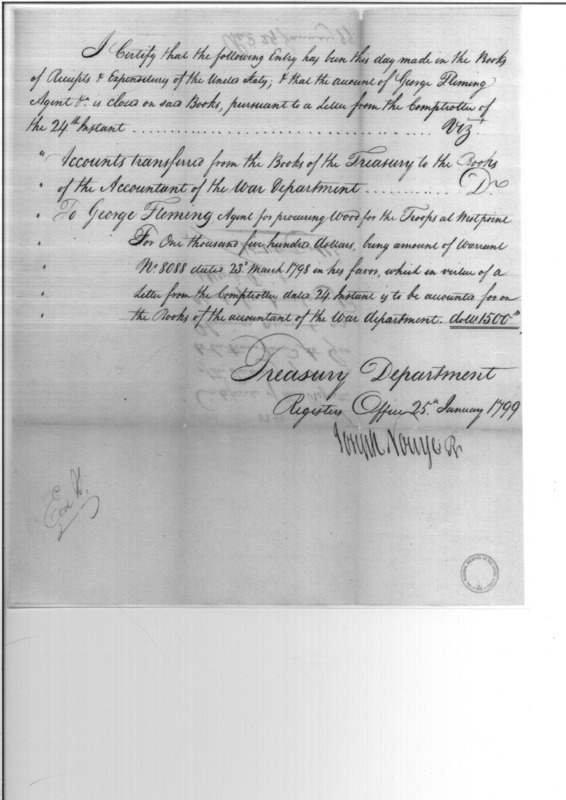 I Certify that the following Entry has been this day made in the Books
of Receipts & Expenditures of the United States; & that the account of George Fleming
Agent &c. is closed on said Books, pursuant to a Letter from the Comptroller of
the 24th Instant ........................................ Vizt
" Accounts transferred from the Books of the Treasury to the Books
" of the Accountant of the War Department .......... Dr
" To George Fleming Agent for procuring Wood for the Troops at Westpoint
" For One thousand five hundred dollars, being amount of Warrant
" No 8088 dated 23d March 1798 in his favor, which in vertue of a
" Letter from the Comptroller dated 24 Instant is to be accounted for on
" the Books of the accountant of the War department. dolls. 1500"
Treasury Department
Registers Office 25th January 1799
Joseph Nourse Rr